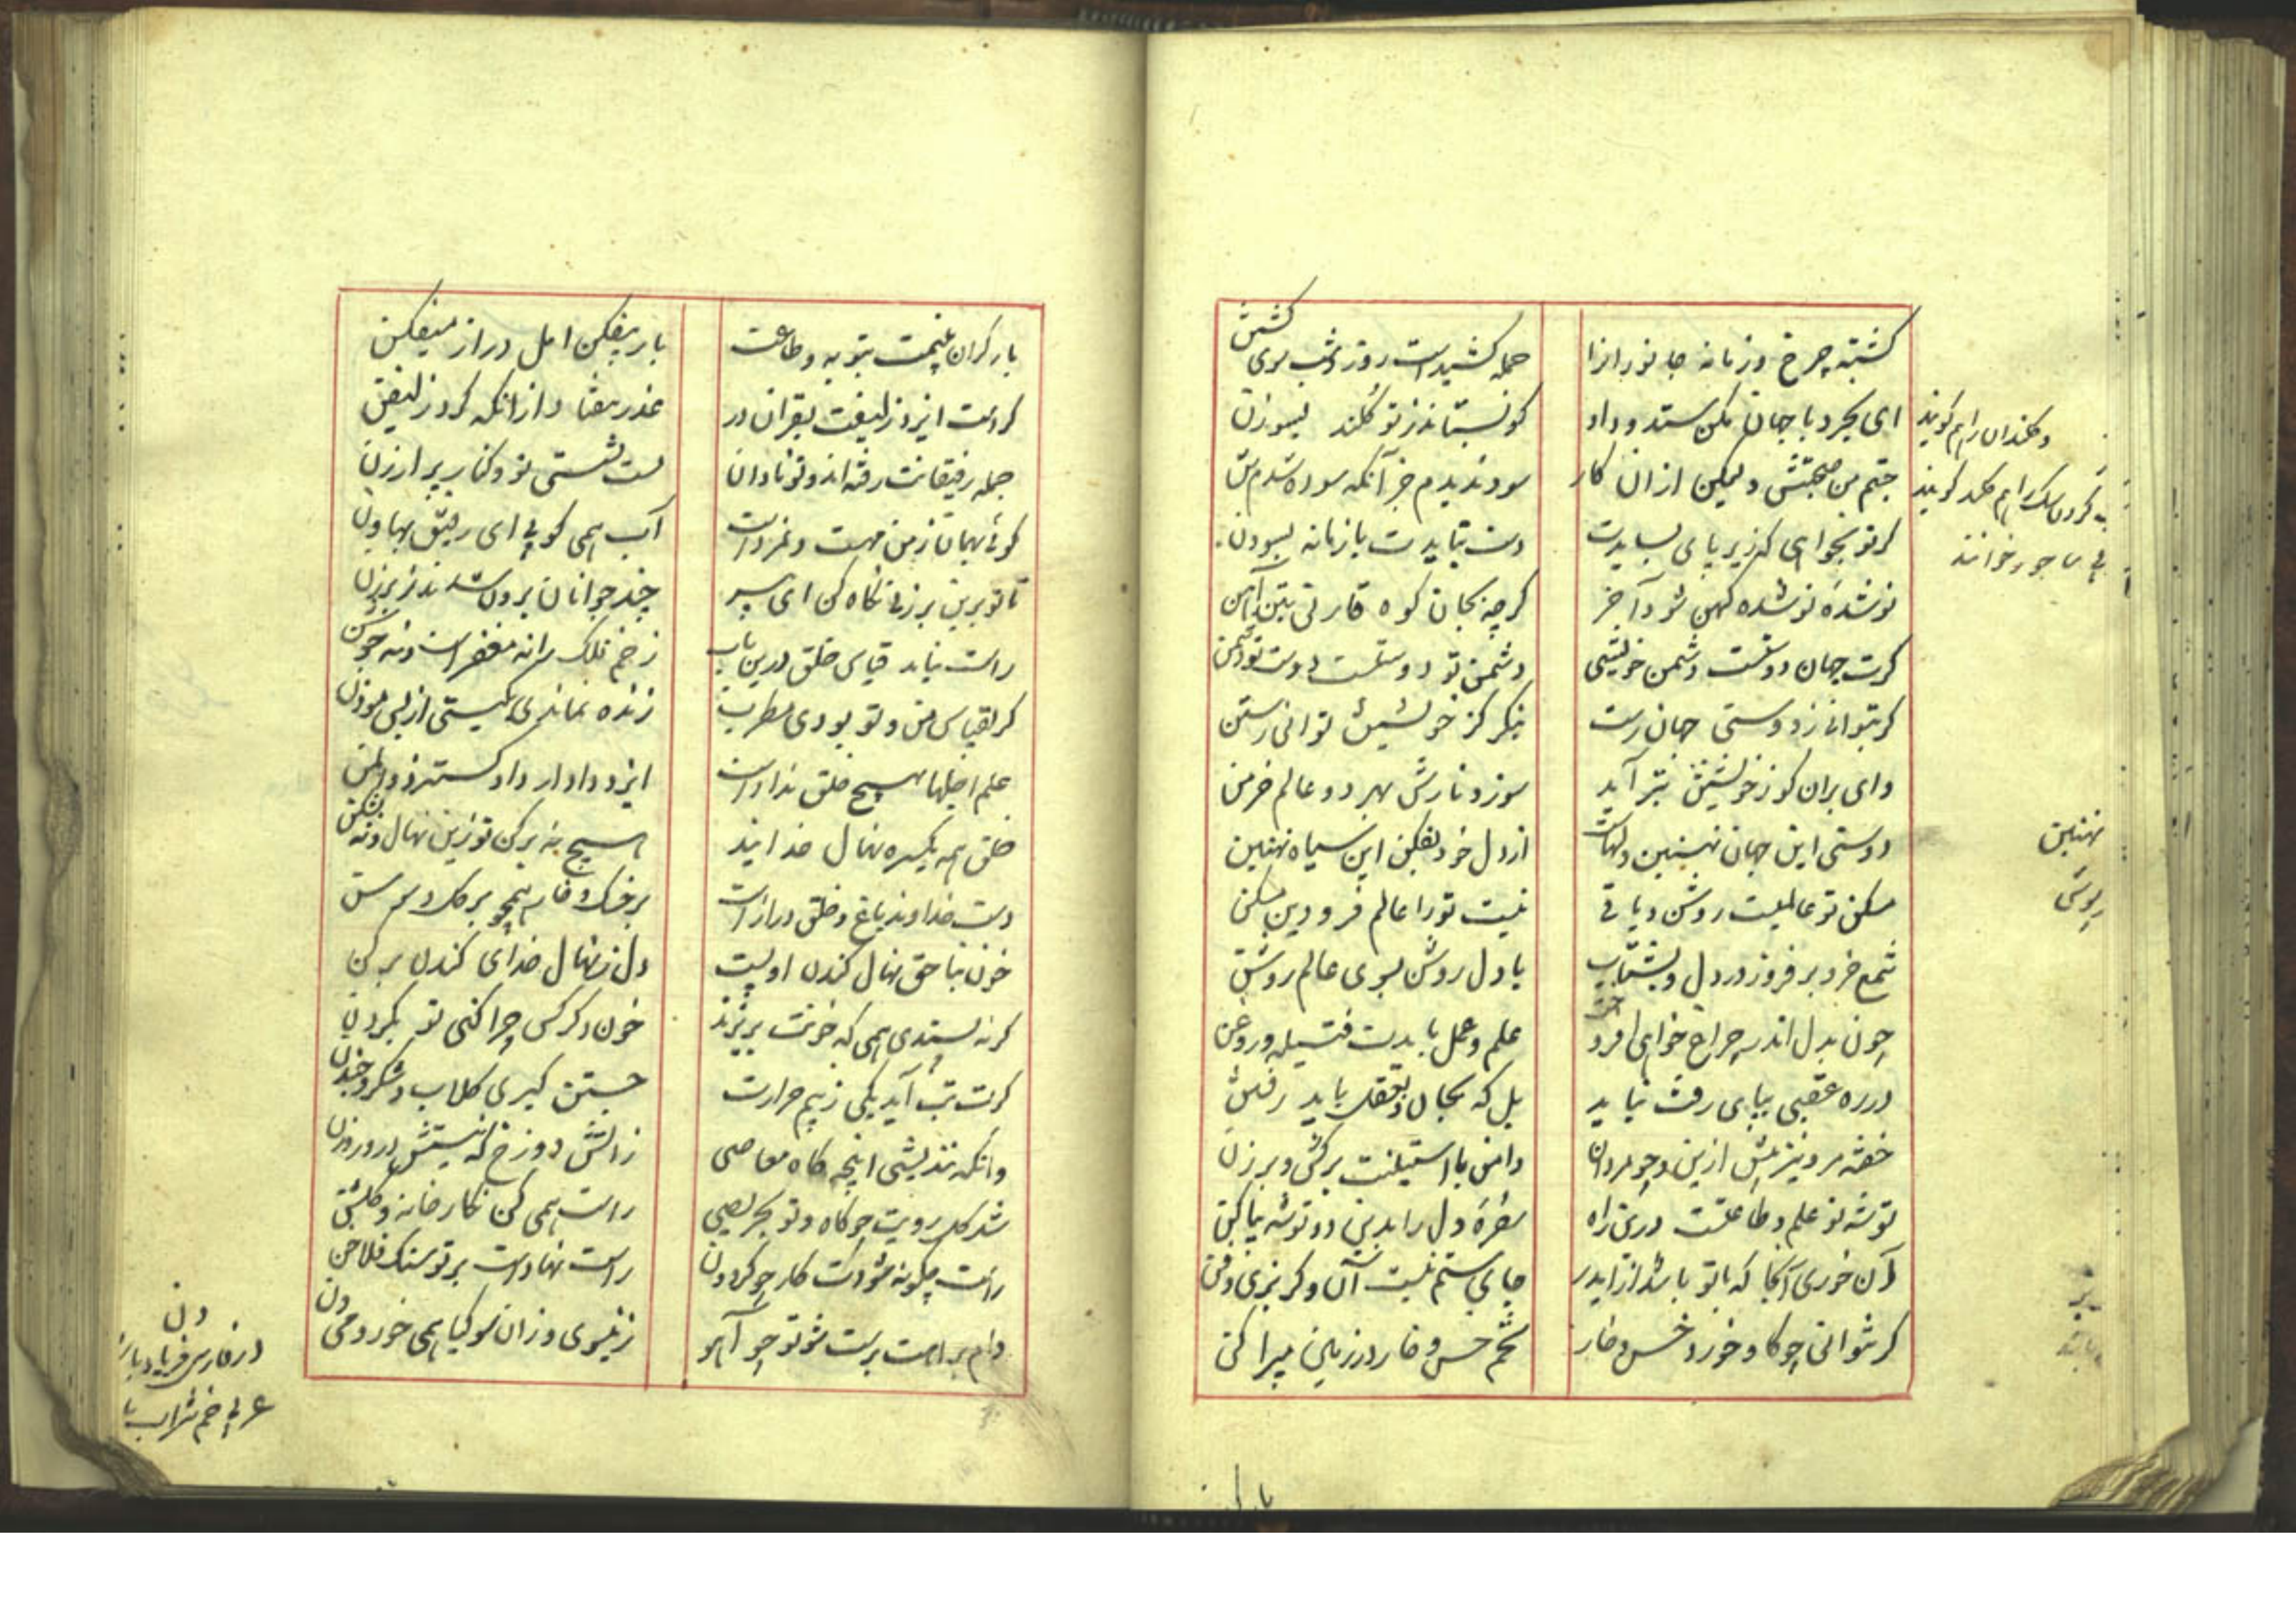 کشتهٔ چرخ و زمانه جانورانرا جمله کشیدست روز و شب سوی کشتن
ای بخرد با جهان مکن ستد و داد کو نستاند ز تو کلند بسوزن
جستم من صحبتش ولیکن ازان کار سود ندیدم جز آنکه سوده شدم تن
کر تو بخواهی که زیر پای بسایدت دست نبایدت با زمانه بسودن
نو شدهٔ نو شده کهن شود آخر کرچه بجان کوه قارنی بتن آهن
کرت جهان دوستست دشمن خویشی دشمن تو دوستست دوست تو دشمن
کر بتوانی ز دوستی جهان رست بنکر کز خویشتن توانی رستن
وای بران کو ز خویشتن نیز آید سوزد نارش بهر دو عالم خرمن
دوستی این جهان نهنبین دلهاست از دل خود بفکن این سیاه نهنبین
مسکن تو عالمیست روشن و باقی نیست تو را عالم فرودین مسکن
شمع خرد بر فروز در دل و بشتاب با دل روشن بسوی عالم روشن
چون بدل اندر چراغ خواهی افروخت علم و عمل بایدت فتیله و روغن
در ره عقبی بپای رفت نباید بل که بجان و بعقل باید رفتن
خفته مرو نیز بیش ازین و چو مردان دامن با آستینت برکش و برزن
توشهٔ تو علم و طاعتست درین راه سفرهٔ دل را بدین دو توشه بیاکن
آن خوری آنجا که با تو باشد از ایدر جای ستم نیست آن و کربزی و فن
کر نتوانی چو کاو خورد خس و خار تخم خس و خار در زمین مپراکن
و کلندان را هم کویند
نهنبین
پوشی
بار کران بینمت بتوبه و طاعت بار بیفکن امل دراز میفکن
کردست ایزد زلیفنت بقران در عذر بیفتاد از انکه کرد زلیفن
جمله رفیقانت رفته اند و تو نادان پست نشستی تو و کنار پر ارزن
کوئی بهمان ز من مهست و نمردست آب همی کوبی ای رفیق بهاون
تا تو برین برزنی نکاه کن ای پسر چند جوانان برون شدند ز برزن
راست نیاید قیاس خلق درین باب زخم فلک را نه مغفرست و نه جوشن
کر بقیاس من و تو بودی مطرب زنده نماندی بکیتی از پس موذن
علم اجلها بهیچ خلق نداده است ایزد دادار داد کستر ذوالمن
خلق همه یکسره نهال خدایند هیچ نه برکن تو زین نهال و نه بشکن
دست خداوند باغ و خلق درازست بر خسک و خار همچو بر کل و سوسن
خون بنا حق نهال کندن اویست دل ز نهال خدای کندن برکن
کر نه پسندی همی که خونت بریزند خون دکر کس چرا کنی تو بکردن
کرت تب آید یکی ز بیم حرارت جستن کیری کلاب و شکر و چندن
وانکه نندیشی ایچ کاه معاصی زاتش دوزخ که نیستش در و روزن
شد کل رویت چو کاه و تو بحریصی راست همی کن نکار خانه و کلشن
راست چکونه شودت کار چو کردون راست نهادست بر تو سنک فلاخن
دام براهت پرست شو تو چو آهو زینسوی و زان سو کیا همی خور و می دن
دن
در فارسی فریاد باشد
عربی خم شراب